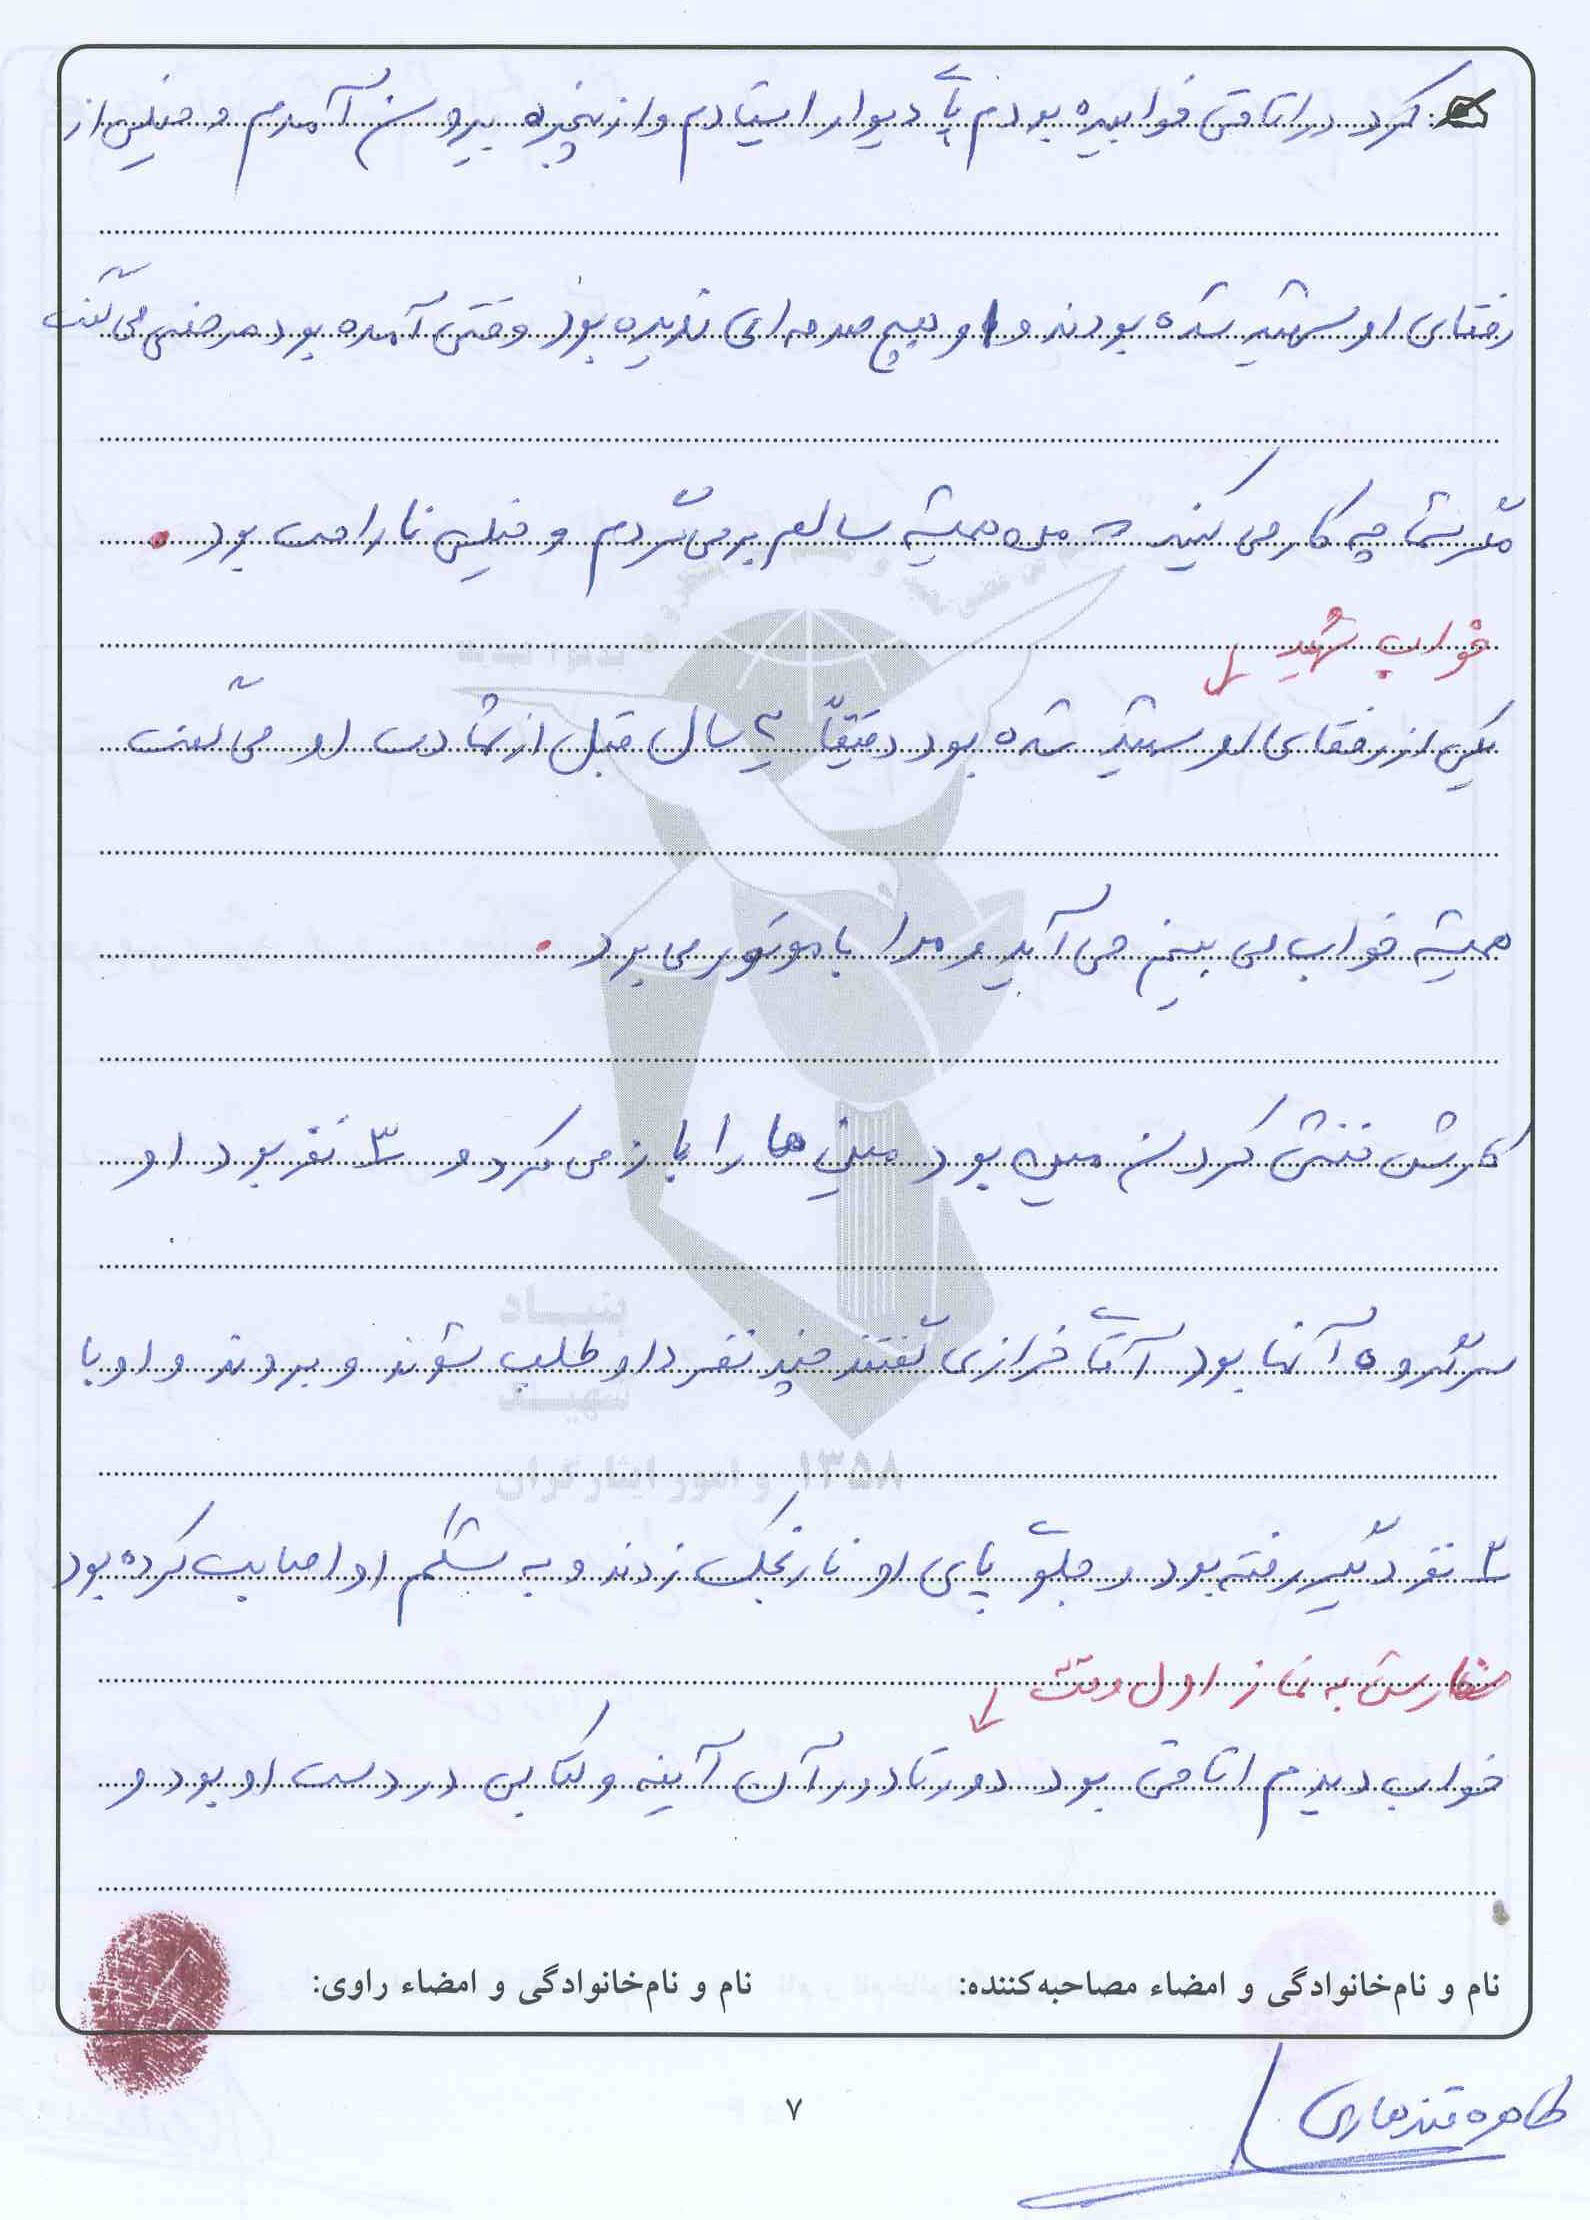 کرد در اتاقی خوابیده بودم پای دیوار ایستادم و از پنجره بیرون آمدم و خیلی از
رفقای او شهید شده بودند و او هیچ صدمه ای ندیده بود وقتی آمده بود مرخصی می گفت
مگر شما چه کار می کنید من همیشه سالم بر می گردم و خیلی ناراحت بود .
خواب شهید
یکی از رفقای او شهید شده بود دقیقاً ۲ سال قبل از شهادت او می گفت
همیشه خواب می بینم می آید و مرا با موتور می برد .
کارش خنثی کردن مین بود مین ها را باز می کرد و ۳ نفر بود او
سرگروه آنها بود آقای خرازی گفتند چند نفر داوطلب شوند و بروند و او با
۲ نفر دیگر رفته بود و جلوی پای او نارنجک زدند و به شکم او اصابت کرده بود
سفارش به نماز اول وقت
خواب دیدم اتاقی بود دور تا دور آن آینه و کتابی در دست او بود و
نام و نام‌خانوادگی و امضاء مصاحبه‌کننده: نام و نام‌خانوادگی و امضاء راوی:
طاهره قندهاری
۷
بنیاد
شهید
و امور ایثارگران ۱۳۵۸